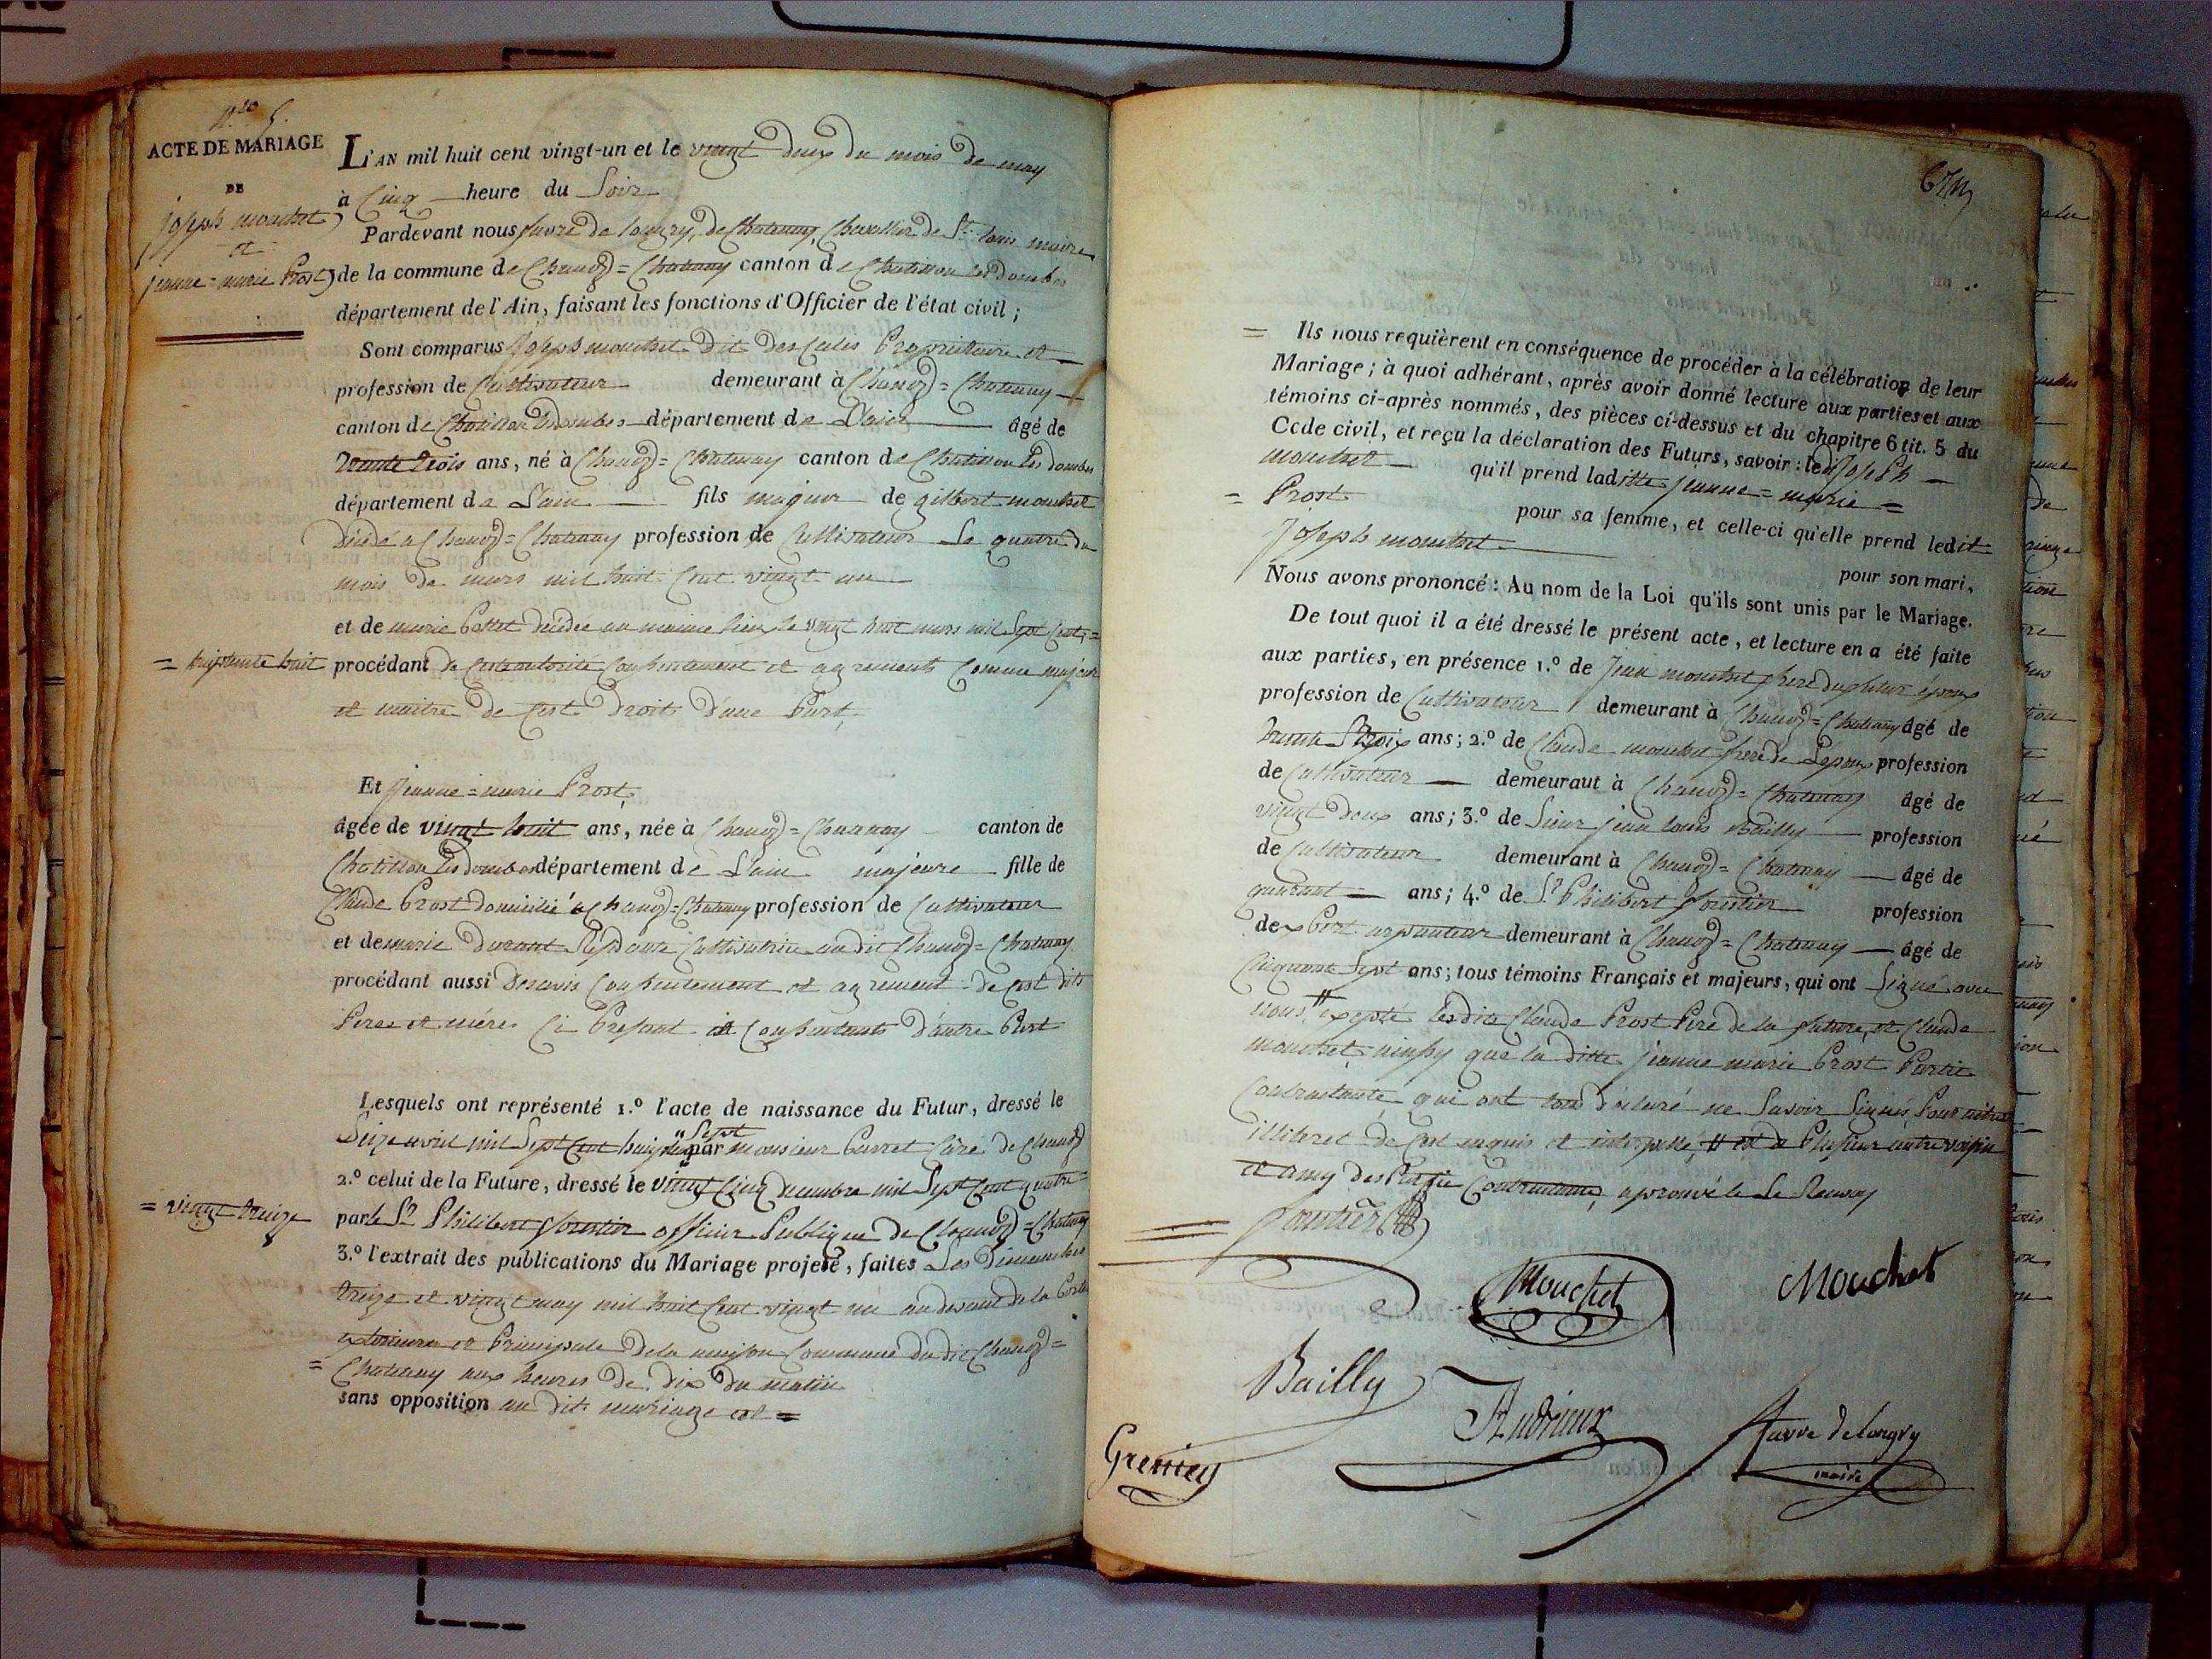 N.ro 5.
ACTE DE MARIAGE
DE
joseph mouchet
et
jeanne = marie Prost
L'AN mil huit cent vingt-un et le vingt deux du mois de may
à Cinq heure du Soir
Pardevant nous favre de longry, de Chatenay, Chevallier de St. louis maire
de la commune de Chanoz = Chatenay canton de Chatillon les dombes
département de l'Ain, faisant les fonctions d'Officier de l'état civil ;
Sont comparus Joseph mouchet dit des Cules Proprietaire et
profession de Cultivateur demeurant à Chanoz = Chatenay
canton de Chatillon les dombes département de L'ain âgé de
trente trois ans, né à Chanoz = Chatenay canton de Chatillon les dombes
département de L'ain fils majeur de gilbert mouchet
décédé a Chanoz = Chatenay profession de Cultivateur Le quatre du
mois de mars mil huit Cent vingt un
et de marie Pottet décédée au maime lieu le vingt huit mars mil Sept Cent =
= huitante huit
procédant de Cest autorité Consentement et agrements Comme majeur
et maitre de Cest Droits d'une Part,
Et Jeanne = marie Prost,
âgée de vingt huit ans, née à Chanoz = Chatenay canton de
Chatillon les dombes département de L'ain majeure fille de
Claude Prost domicilié a Chanoz = Chatenay profession de Cultivateur
et de marie durant Cultivatrice au dit Chanoz = Chatenay
procédant aussi Desavis Consentement et agrement de Cest dits
Peres et mére Ci Present et Consentants d'autre Part
Lesquels ont représenté 1.º l'acte de naissance du Futur, dressé le
Seize avril mil Sept Cent huitante Sept par monsieur Curé de Chanoz
2.º celui de la Future, dressé le vingt Cinq decembre mil Sept Cent quatre =
= vingt treize
par le Sr. Philibert forestier officier Publique de Chanoz = Chatenay
3.º l'extrait des publications du Mariage projeté, faites Les Dimanches
treize et vingt may mil huit Cent vingt un au devant de la Porte
exterieure et Principale de la maison Commune du dit Chanoz =
= Chatenay aux heures de dix du matin
sans opposition au dit mariage et =
= Ils nous requièrent en conséquence de procéder à la célébration de leur
Mariage ; à quoi adhérant, après avoir donné lecture aux parties et aux
témoins ci-après nommés, des pièces ci-dessus et du chapitre 6 tit. 5 du
Code civil, et reçu la déclaration des Futurs, savoir : ledit Joseph
mouchet qu'il prend laditte jeanne = marie =
= Prost pour sa femme, et celle-ci qu'elle prend ledit
Joseph mouchet pour son mari,
Nous avons prononcé : Au nom de la Loi qu'ils sont unis par le Mariage.
De tout quoi il a été dressé le présent acte, et lecture en a été faite
aux parties, en présence 1.º de Jean mouchet frere du futur époux
profession de Cultivateur demeurant à Chanoz = Chatenay âgé de
trente ans ; 2.º de Claude mouchet frere de L'époux profession
de Cultivateur demeuraut à Chanoz = Chatenay âgé de
vingt deux ans ; 3.º de Sieur jean louis Bailly profession
de Cultivateur demeurant à Chanoz = Chatenay âgé de
quarant ans ; 4.º de Sr. Philibert forestier profession
dexpert arpanteur demeurant à Chanoz = Chatenay âgé de
Cinquante Sept ans ; tous témoins Français et majeurs, qui ont Signé avec
nous exepté lesdits Claude Prost Pere de la future, et Claude
mouchet ainssy que la ditte jeanne marie Prost Partie
Contractante qui ont tous déclaré ne Savoir Signés Pour
illiteret de Cest enquis et interpellé, et de Plusieur autre voisin
et amy des Partie Contractante, aprouvé le
forestier
Mouchet
Mouchet
Bailly
Andrieux
favre de longry
maire
Greniey